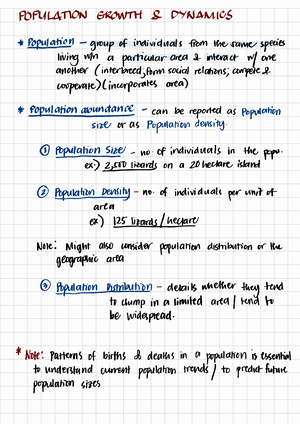 POPULATION GROWTH & DYNAMICS
* Population - group of individuals from the same species
living w/n a particular area & interact w/ one
another (interbreed, form social relations, compete &
cooperate) (incorporates area)
* Population abundance - can be reported as Population
size or as Population density.
① Population Size - no. of individuals in the popn.
ex:) 2,500 lizards on a 20 hectare island
② Population Density - no. of individuals per unit of
area
ex) 125 lizards / hectare
Note: Might also consider population distribution or the
geographic area
③ Population Distribution - details whether they tend
to clump in a limited area / tend to
be widespread.
* Note: Patterns of births & deaths in a population is essential
to understand current population trends / to predict future
population sizes